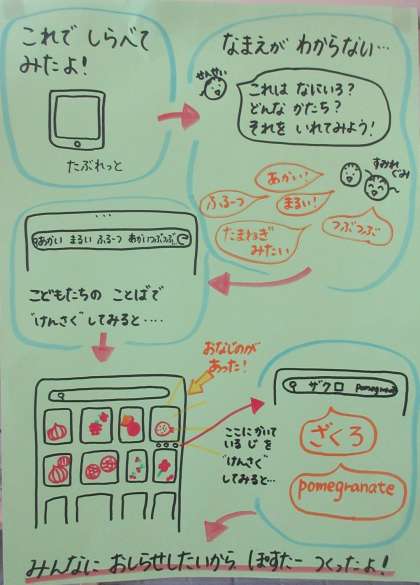 これで しらべて
みたよ!
たぶれっと
なまえが わからない…
せんせい
これは なにいろ?
どんな かたち?
それを いれてみよう!
すみれ
ぐみ
あかい!
ふるーつ
まるい!
たまねぎ
みたい
つぶつぶ
あかい まるい ふるーつ あかいつぶつぶ
こどもたちの ことばで
"けんさく"してみると‥‥
おなじのが
あった!
ここにかいて
いる じ を
"けんさく"
してみると…
ザクロ pomegranate
ざくろ
pomegranate
みんなに おしらせしたいから ぽすたー つくったよ!